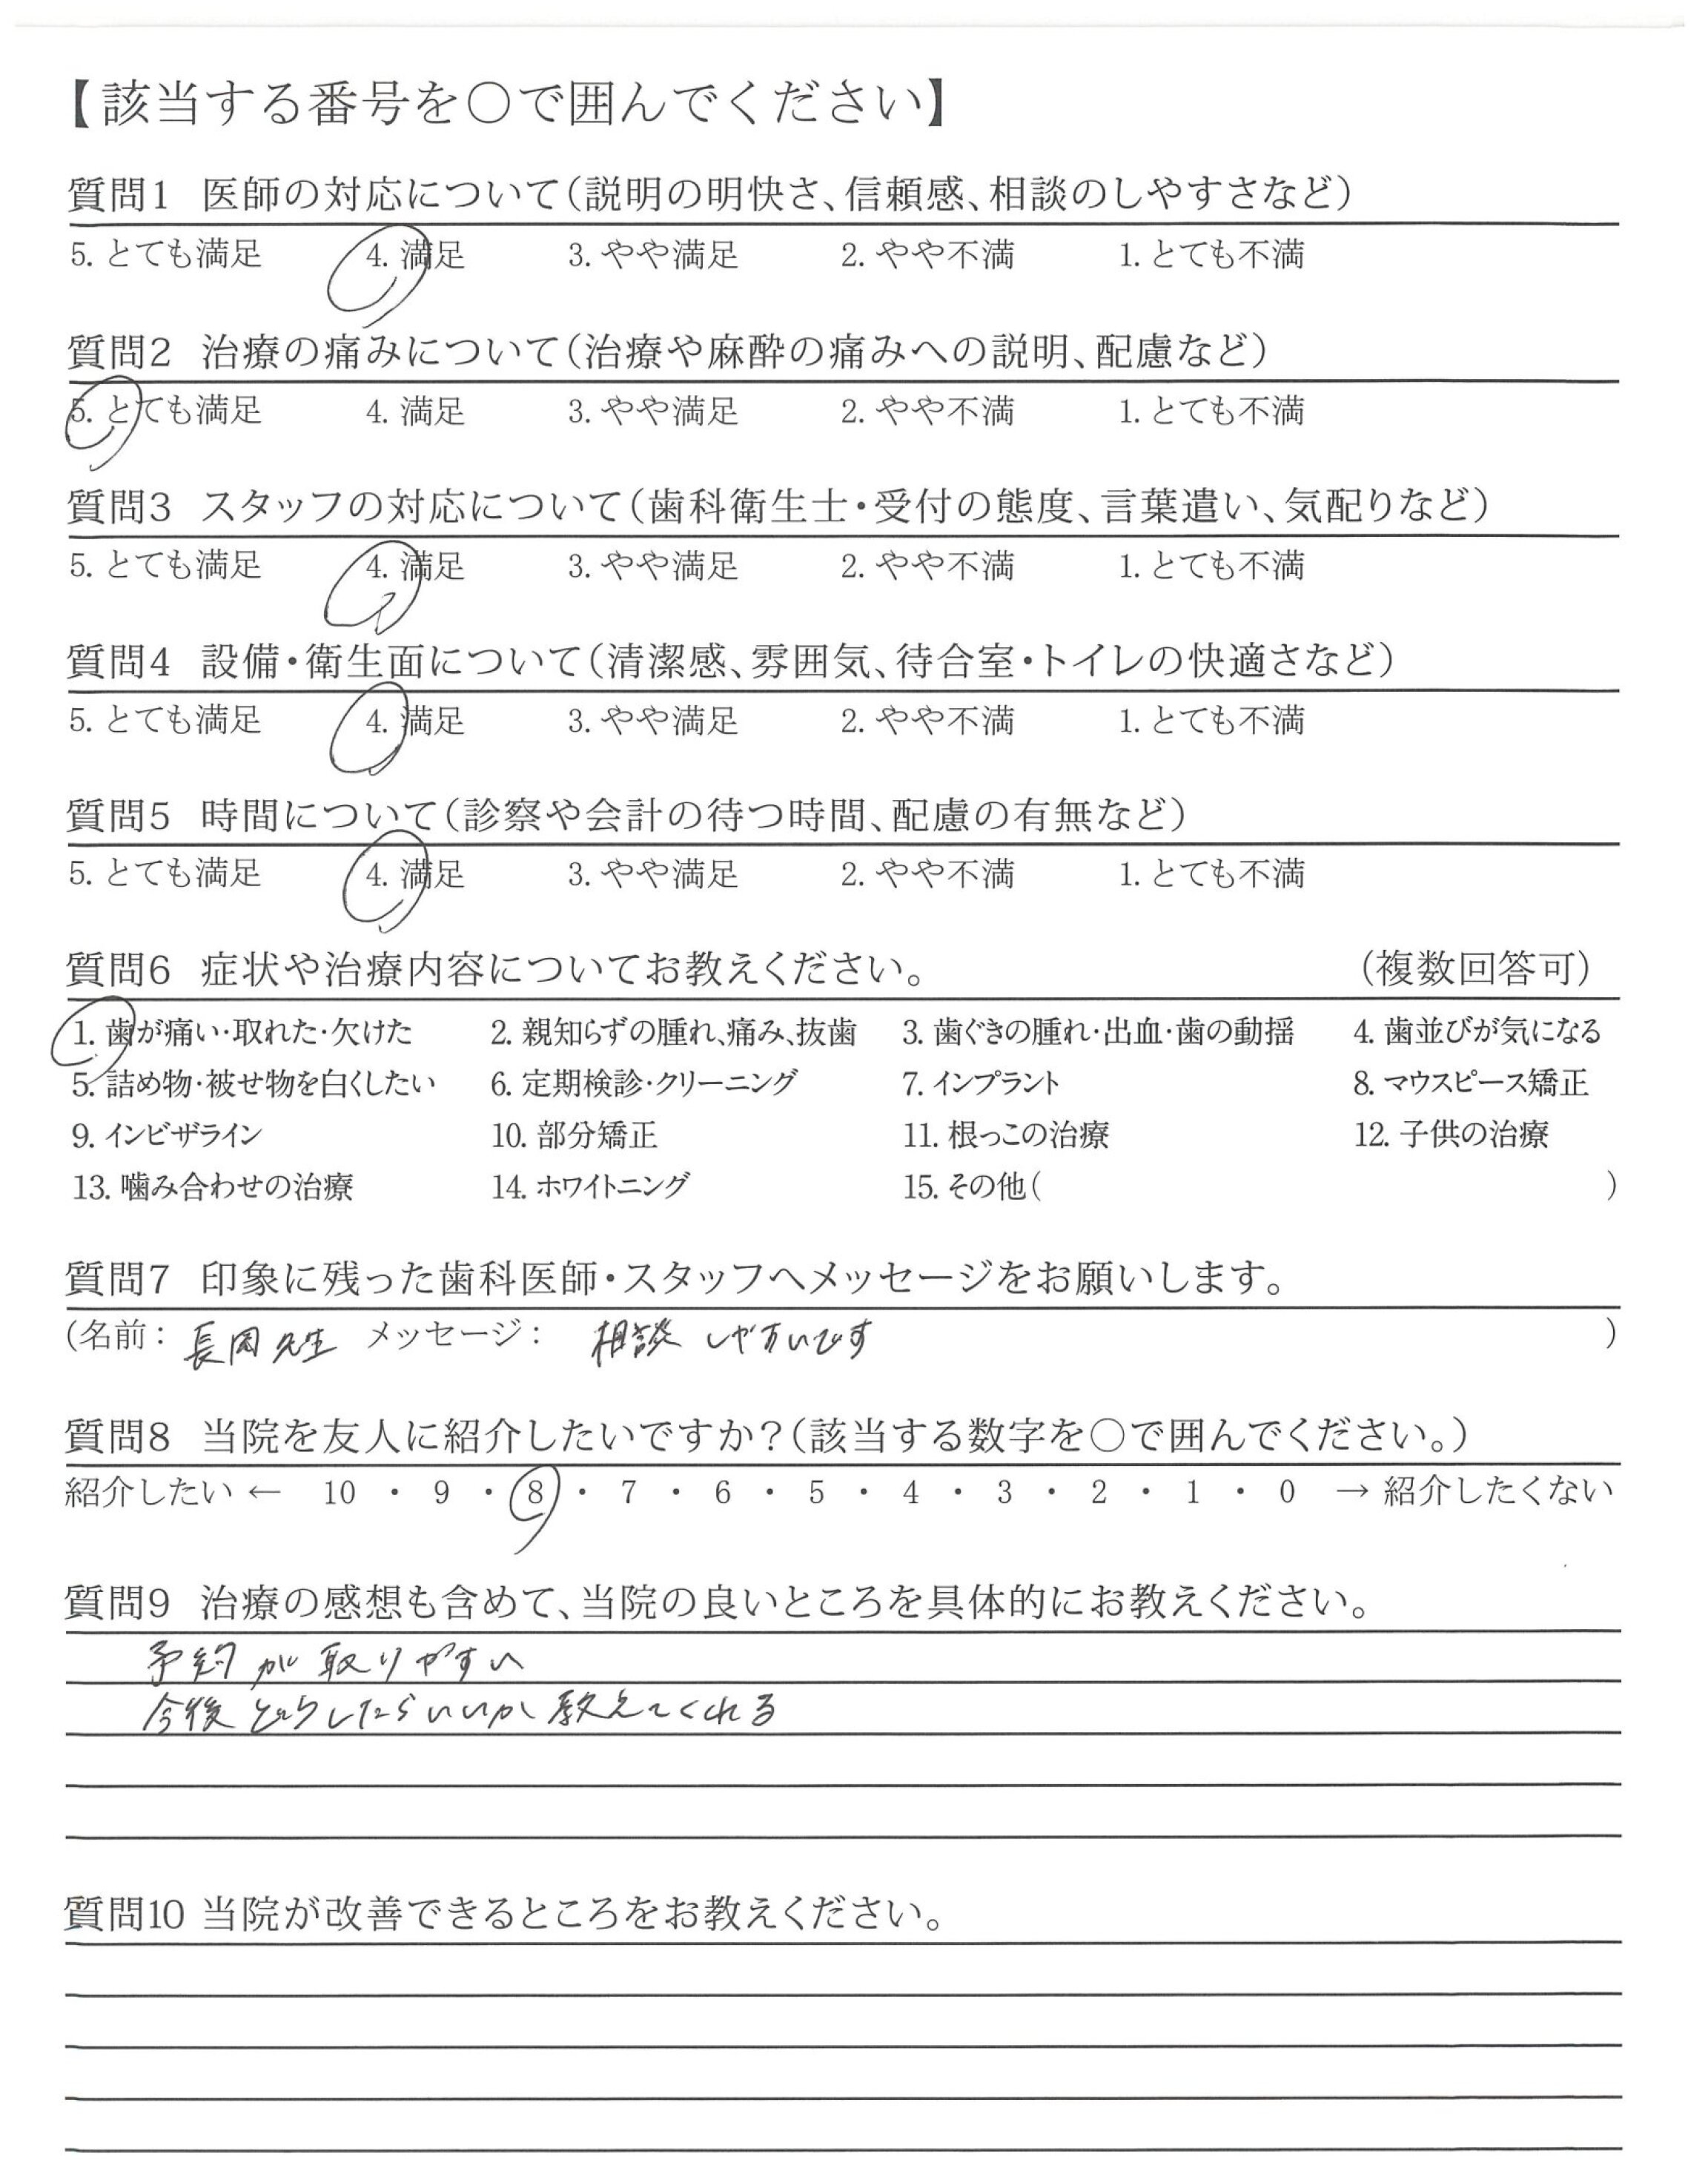 【該当する番号を〇で囲んでください】
質問1 医師の対応について（説明の明快さ、信頼感、相談のしやすさなど）
5. とても満足 4. 満足 3. やや満足 2. やや不満 1. とても不満
質問2 治療の痛みについて（治療や麻酔の痛みへの説明、配慮など）
5. とても満足 4. 満足 3. やや満足 2. やや不満 1. とても不満
質問3 スタッフの対応について（歯科衛生士・受付の態度、言葉遣い、気配りなど）
5. とても満足 4. 満足 3. やや満足 2. やや不満 1. とても不満
質問4 設備・衛生面について（清潔感、雰囲気、待合室・トイレの快適さなど）
5. とても満足 4. 満足 3. やや満足 2. やや不満 1. とても不満
質問5 時間について（診察や会計の待つ時間、配慮の有無など）
5. とても満足 4. 満足 3. やや満足 2. やや不満 1. とても不満
質問6 症状や治療内容についてお教えください。 （複数回答可）
1. 歯が痛い・取れた・欠けた 2. 親知らずの腫れ、痛み、抜歯 3. 歯ぐきの腫れ・出血・歯の動揺 4. 歯並びが気になる
5. 詰め物・被せ物を白くしたい 6. 定期検診・クリーニング 7. インプラント 8. マウスピース矯正
9. インビザライン 10. 部分矯正 11. 根っこの治療 12. 子供の治療
13. 噛み合わせの治療 14. ホワイトニング 15. その他（ ）
質問7 印象に残った歯科医師・スタッフへメッセージをお願いします。
（名前： 長岡先生 メッセージ： 相談しやすいです ）
質問8 当院を友人に紹介したいですか？（該当する数字を〇で囲んでください。）
紹介したい ← 10 ・ 9 ・ 8 ・ 7 ・ 6 ・ 5 ・ 4 ・ 3 ・ 2 ・ 1 ・ 0 → 紹介したくない
質問9 治療の感想も含めて、当院の良いところを具体的にお教えください。
予約が取りやすい
今後どうしたらいいか教えてくれる
質問10 当院が改善できるところをお教えください。